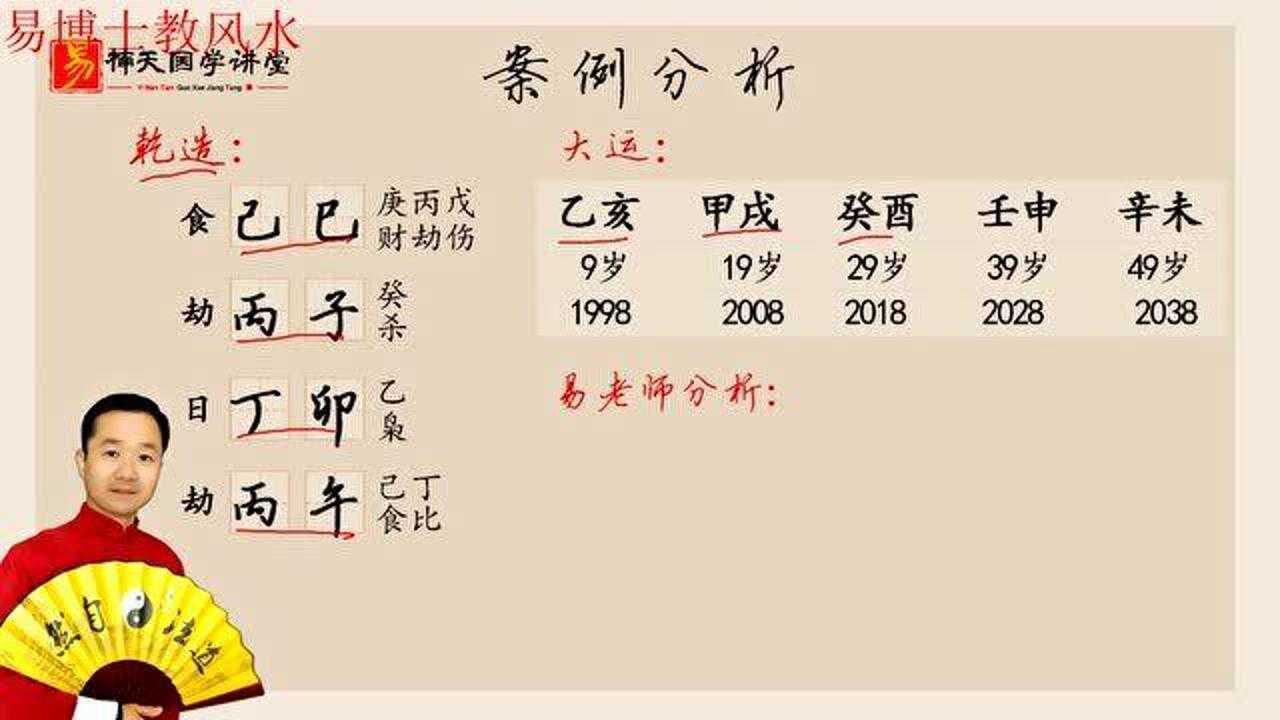 易博士教风水
易 禅天国学讲堂
Yi Nan Tian Guo Xue Jiang Tang
案例分析
乾造：
食 己 巳 庚丙戊
财劫伤
劫 丙 子 癸
杀
日 丁 卯 乙
枭
劫 丙 午 己丁
食比
大运：
乙亥 甲戌 癸酉 壬申 辛未
9岁 19岁 29岁 39岁 49岁
1998 2008 2018 2028 2038
易老师分析：
自 道